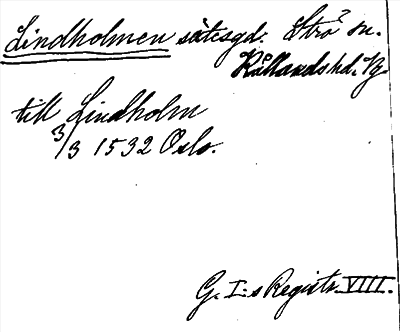 Lindholmen sätesgd. Strö sn.
Kållands hd. Vg.
till Lindholm
3/3 1532 Oslo.
G. I:s Registr. VIII.